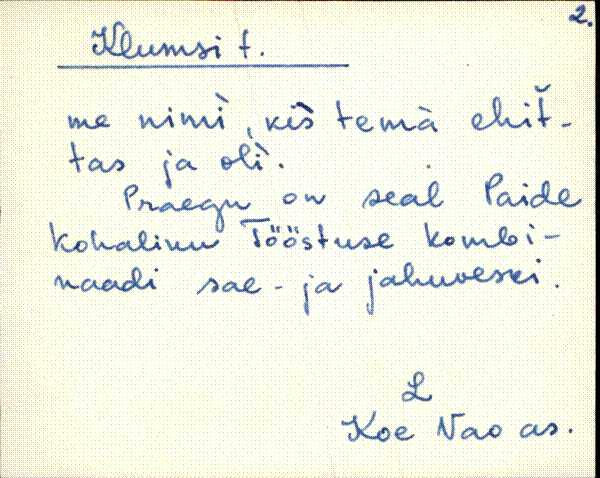 2.
Klumsi t.
me nimì, kìs temà ehit̆-
tas ja olì.
Praegu on seal Paide
kohaliku Tööstuse kombi-
naadi sae- ja jahuveski.
L
Koe Vao as.